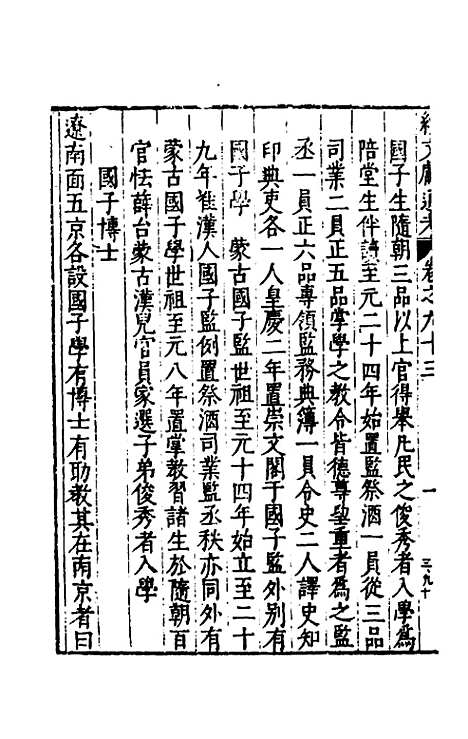 續文獻通考 卷之九十三 一 三九十
國子生隨朝三品以上官得舉凡民之俊秀者入學為
陪堂生伴讀至元二十四年始置監祭酒一員從三品
司業二員正五品掌學之教令皆德尊望重者為之監
丞一員正六品專領監務典簿一員令史二人譯史知
印典吏各一人皇慶二年置崇文閣于國子監外別有
國子學 蒙古國子監世祖至元十四年始立至二十
九年准漢人國子監例置祭酒司業監丞秩亦同外有
蒙古國子學世祖至元八年置掌教習諸生於隨朝百
官怯薛台蒙古漢兒官員家選子弟俊秀者入學
國子博士
遼南面五京各設國子學有博士有助教其在南京者曰